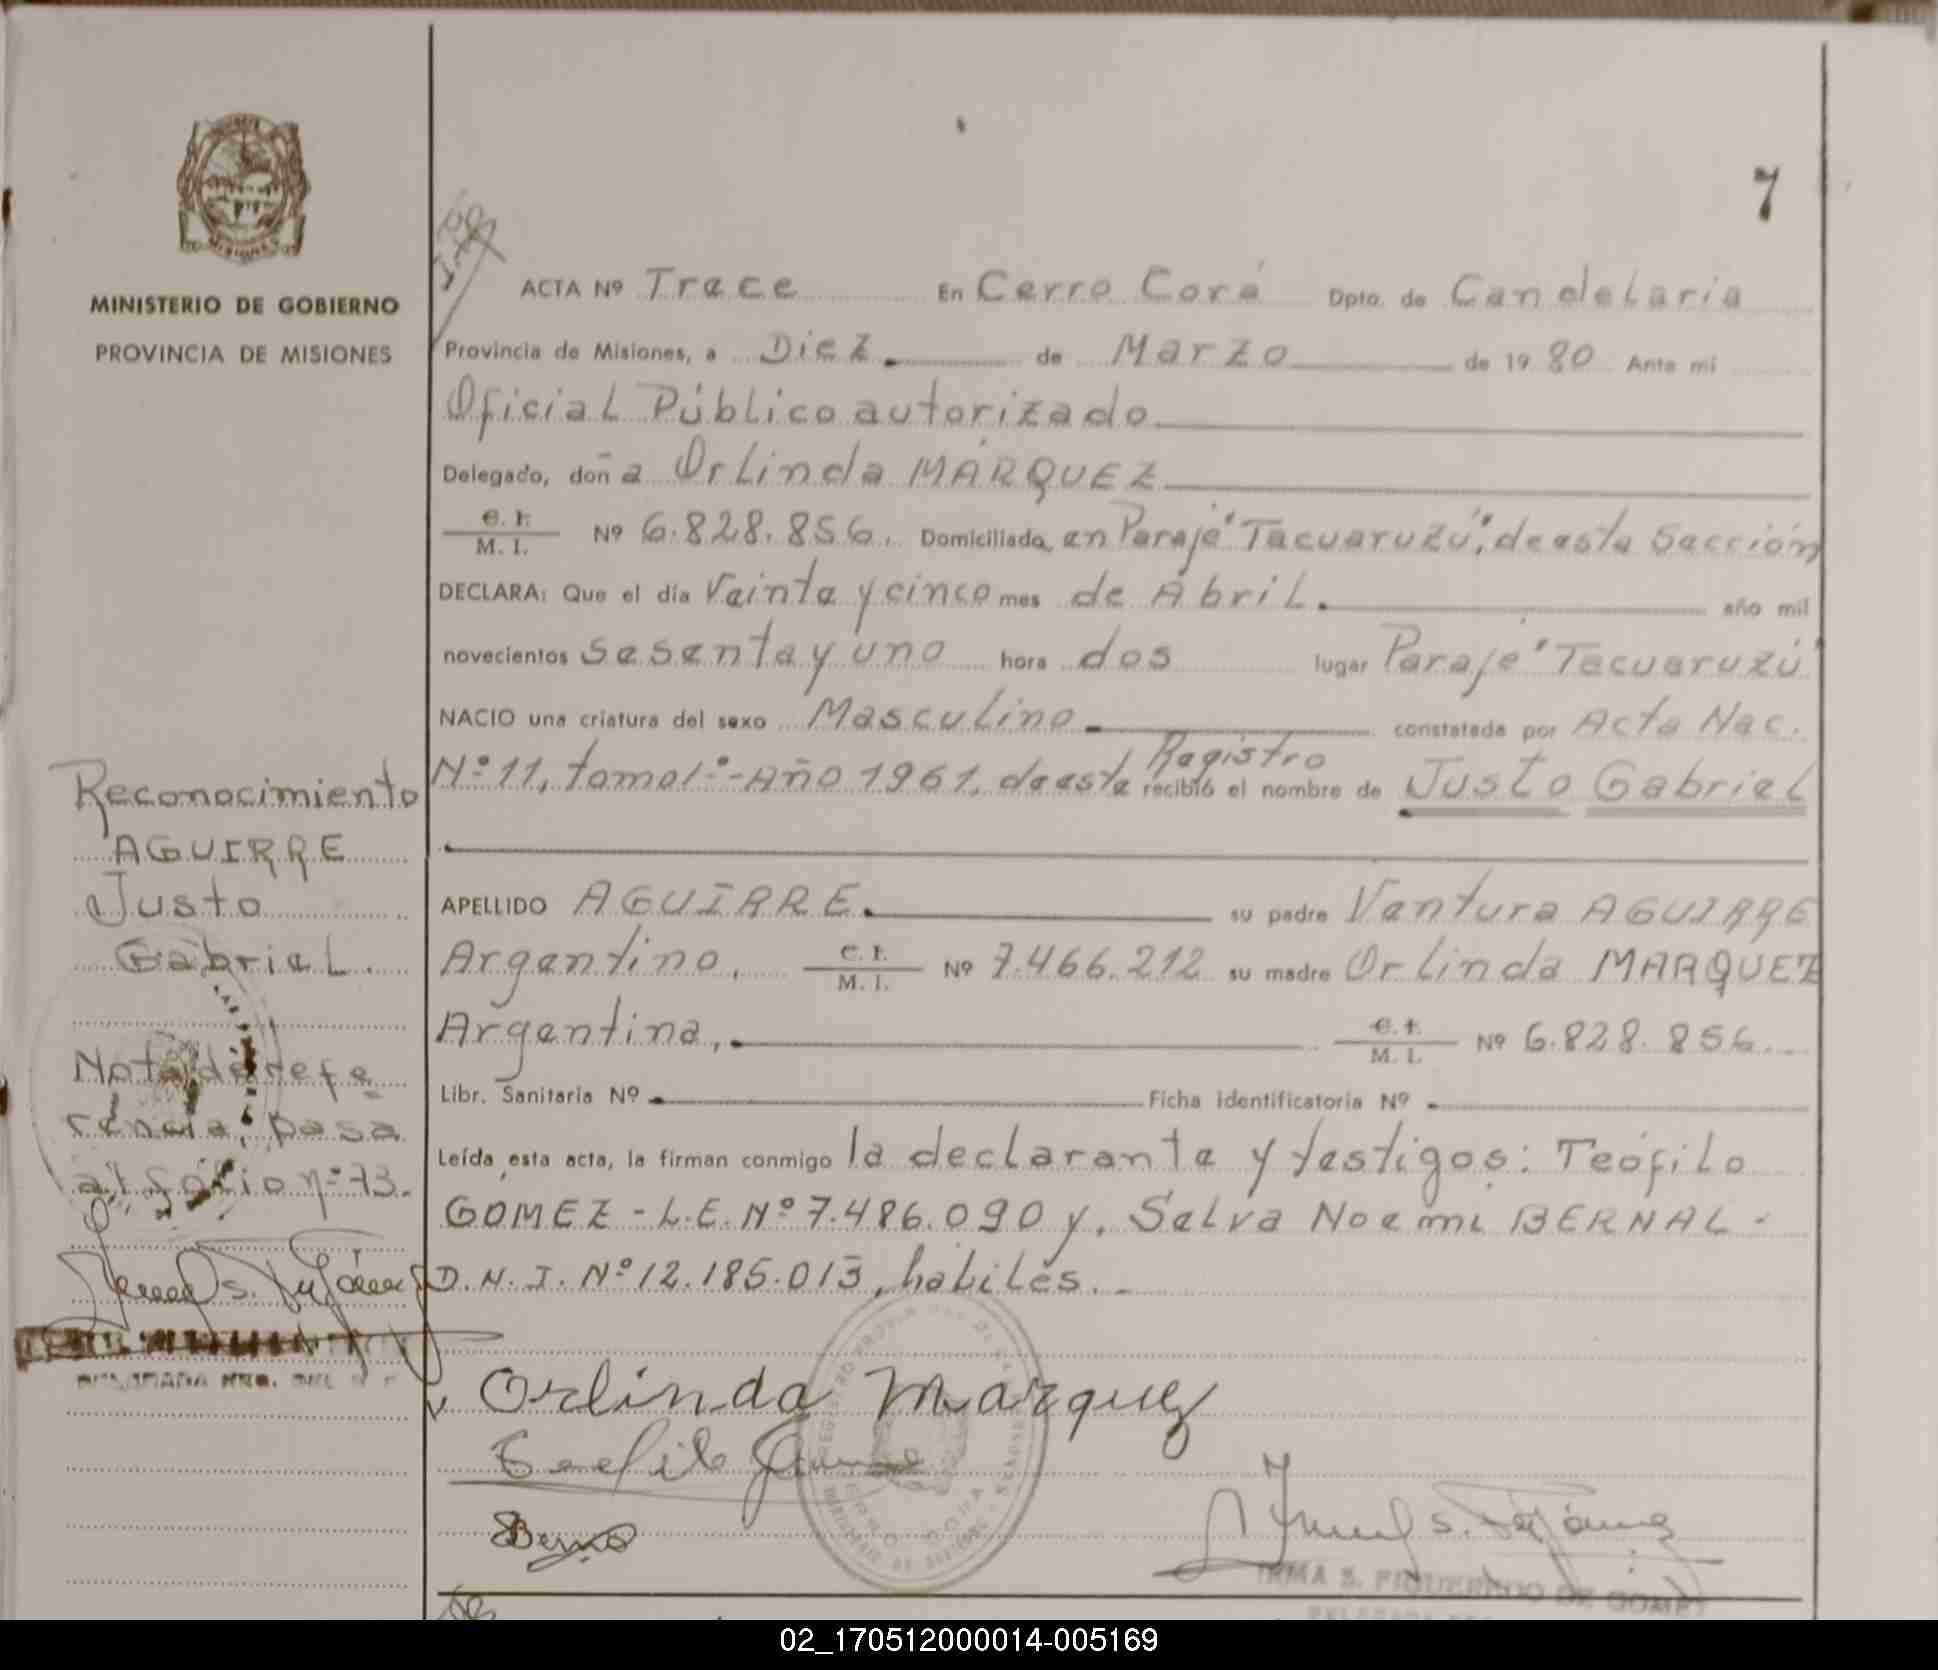 7
MINISTERIO DE GOBIERNO
PROVINCIA DE MISIONES
ACTA Nº Trece En Cerro Corá Dpto. de Candelaria
Provincia de Misiones, a Diez de Marzo de 1980 Ante mi
Oficial Público autorizado
Delegado, doña Orlinda MÁRQUEZ
C. I. M. I. Nº 6.828.856. Domiciliada, en Paraje "Tacuaruzú", de esta Sección
DECLARA: Que el día Veinte y cinco mes de Abril. año mil
novecientos sesenta y uno hora dos lugar Paraje "Tacuaruzú"
NACIO una criatura del sexo Masculino constatada por Acta Nac.
Nº 11, tomo 1º- Año 1961, de este Registro recibió el nombre de Justo Gabriel
APELLIDO AGUIRRE. su padre Ventura AGUIRRE
Argentino, C. I. M. I. Nº 7.466.212 su madre Orlinda MARQUEZ
Argentina, C. I. M. I. Nº 6.828.856
Libr. Sanitaria Nº Ficha identificatoria Nº
Leída esta acta, la firman conmigo la declarante y testigos: Teófilo
GÓMEZ - L.E. Nº 7.486.090 y, Selva Noemi BERNAL-
D.N.I. Nº 12.185.013, hábiles.
Orlinda Marquez
IRMA S. FIGUEREDO DE GOMEZ
Reconocimiento
AGUIRRE
Justo
Gabriel.
Nota de refe
rencia, pasa
al folio nº 73.
02_170512000014-005169